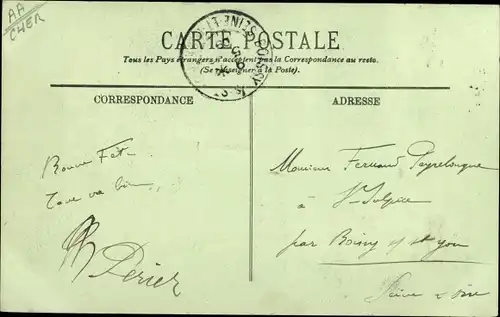 AA
CHER
CARTE POSTALE
Tous les Pays étrangers n'acceptent pas la Correspondance au recto.
(Se renseigner à la Poste).
CORRESPONDANCE
ADRESSE
Bonne Fête
Tout va bien
Périer
Monsieur Fernand Peyrelongue
à
St Sulpice
par Boissy
Seine & Oise